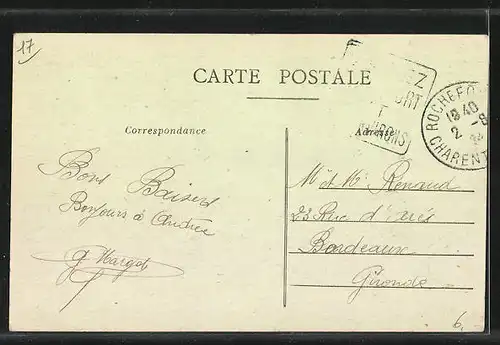 17
CARTE POSTALE
Correspondance
Adresse
Z
ORT
ROCHEFO
18 40
2 -8
CHARENT
Bons Baisers
Bonjours à Andrée
Margot
M et Me Renaud
23 Rue d'Arès
Bordeaux
Gironde
6.